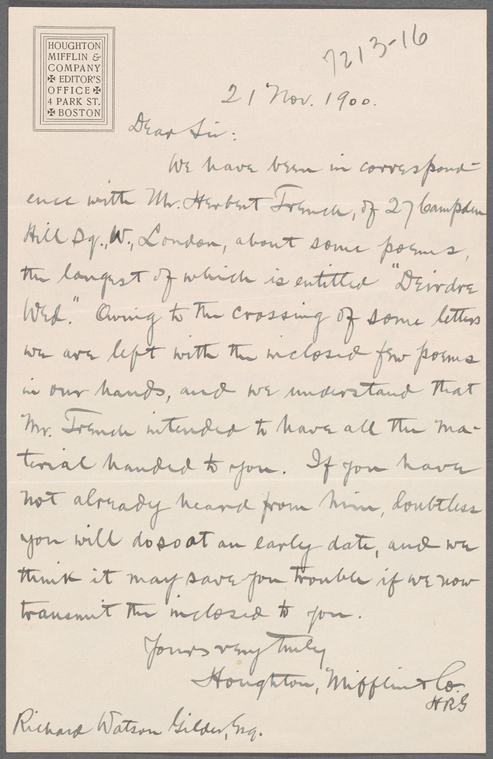 HOUGHTON
MIFFLIN &
COMPANY
✠ EDITOR'S
OFFICE ✠
4 PARK ST.
✠ BOSTON
7213-16
21 Nov. 1900.
Dear Sir:
We have been in correspond-
ence with Mr. Herbert Trench, of 27 Campden
Hill Sq., W., London, about some poems,
the longest of which is entitled "Deirdre
Wed." Owing to the crossing of some letters
we are left with the inclosed few poems
in our hands, and we understand that
Mr. Trench intended to have all the ma-
terial handed to you. If you have
not already heard from him, doubtless
you will do so at an early date, and we
think it may save you trouble if we now
transmit the inclosed to you.
Yours very truly
Houghton, Mifflin & Co.
HRG
Richard Watson Gilder, Esq.